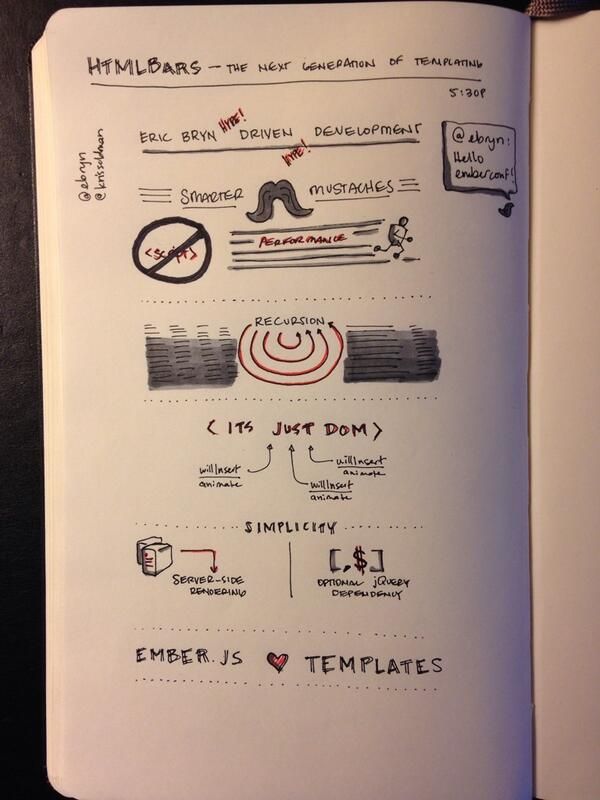 HTMLBARS — THE NEXT GENERATION OF TEMPLATING
5:30P
@ebryn
@krisselden
ERIC BRYN HYPE! DRIVEN HYPE! DEVELOPMENT
@ebryn:
Hello
emberconf!
SMARTER MUSTACHES
<script>
PERFORMANCE
RECURSION
< ITS JUST DOM >
willInsert
animate
willInsert
animate
willInsert
animate
SIMPLICITY
SERVER-SIDE
RENDERING
[,$]
OPTIONAL jQUERY
DEPENDENCY
EMBER.JS ♥ TEMPLATES